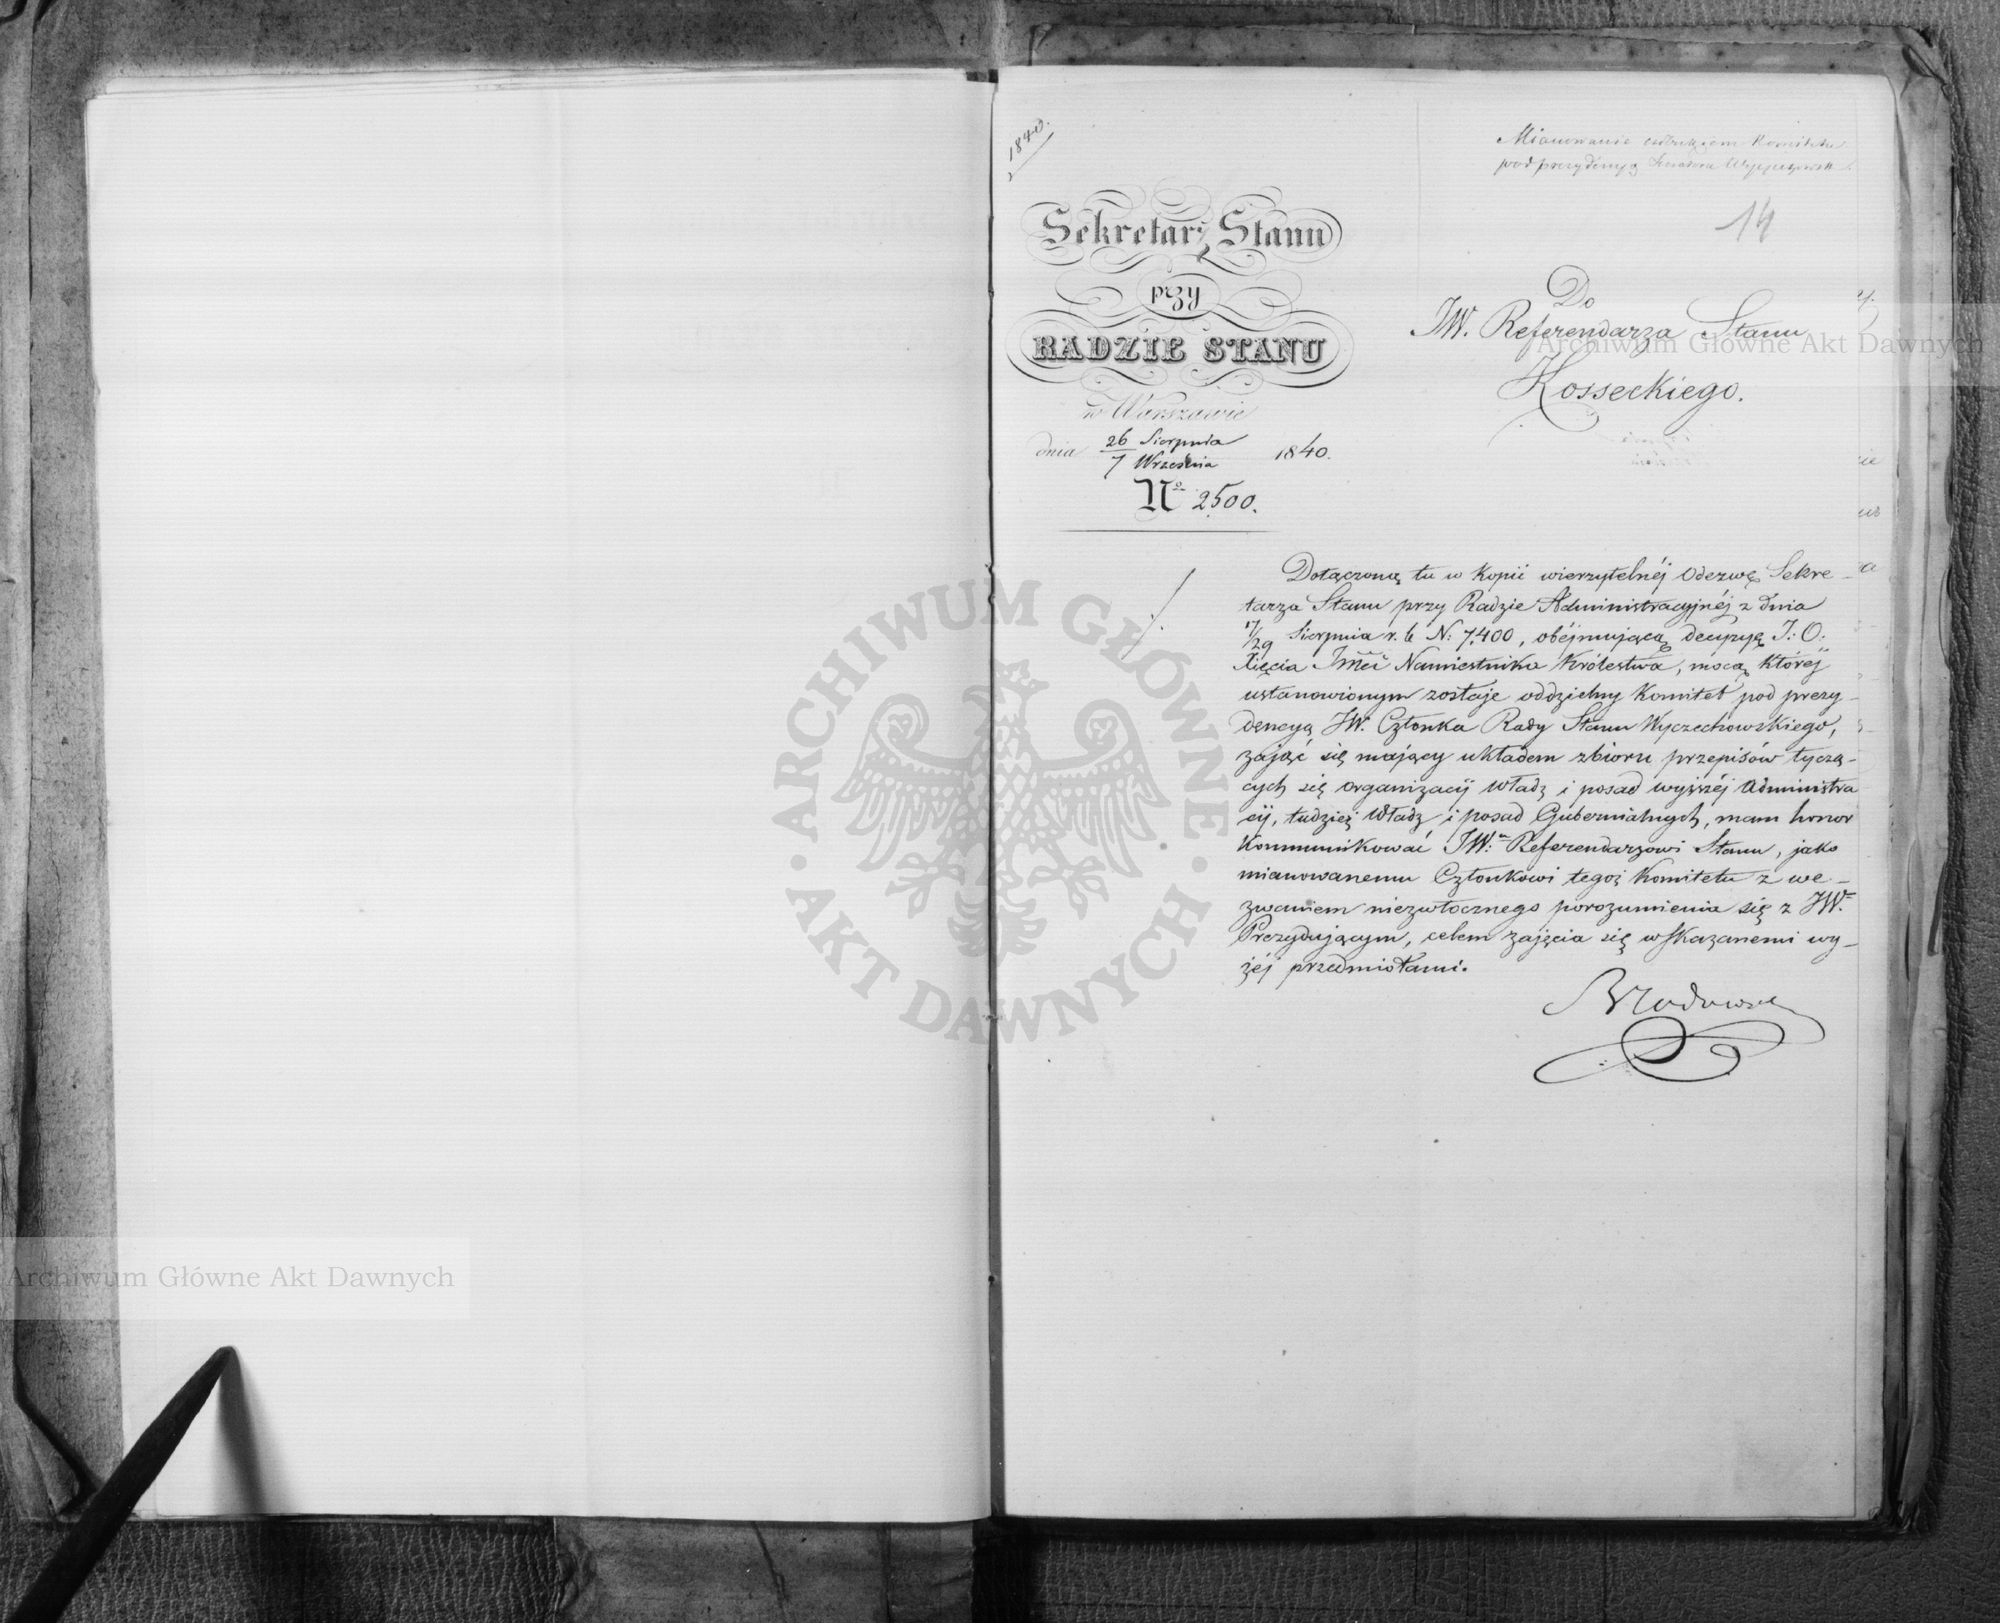 1840.
Mianowanie członkiem Komitetu
pod prezydencyą Senatora
14
Sekretarz Stanu
przy
RADZIE STANU
w Warszawie
dnia 26 Sierpnia / 7 Września 1840.
No 2500.
Do
JW. Referendarza Stanu
Kosseckiego.
Dołączoną tu w Kopii wierzytelnéj Odezwę Sekre-
tarza Stanu przy Radzie Administracyjnéj z dnia
17/29 Sierpnia r. b. N: 7,400, obéjmującą decyzyę J: O:
Xięcia Jmći Namiestnika Królestwa, mocą któréj
ustanowionym zostaje oddzielny Komitet pod prezy-
dencyą JW. Członka Rady Stanu Wyczechowskiego,
zająć się mający układem zbioru przepisów tyczą-
cych się organizacyj Władz i posad wyższéj Administra
cyi, tudzież Władz i posad Gubernialnych, mam honor
Kommunikować JW: Referendarzowi Stanu, jako
mianowanemu Członkowi tegoż Komitetu z we-
zwaniem niezwłocznego porozumienia się z JW.
Prezydującym, celem zajęcia się wskazanemi wy-
żéj przedmiotami.
Brzozowski
Archiwum Główne Akt Dawnych
ARCHIWUM GŁÓWNE AKT DAWNYCH
Archiwum Główne Akt Dawnych